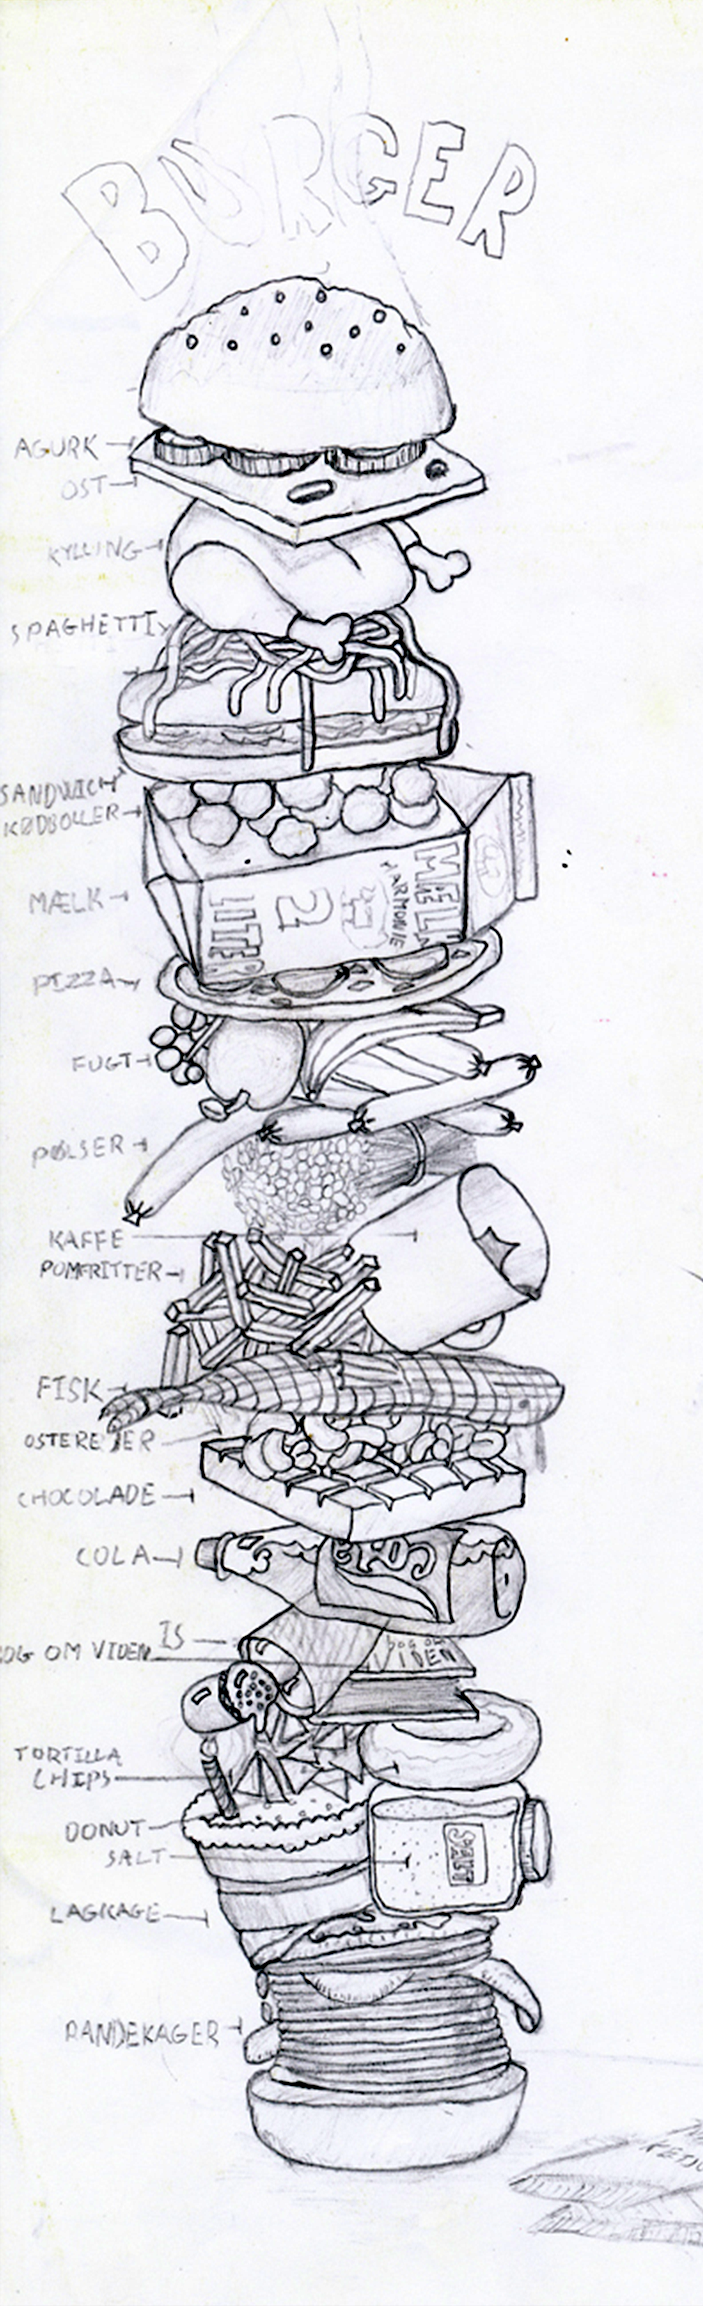 BURGER
AGURK
OST
KYLLING
SPAGHETTI
SANDWICH
KØDBOLLER
MÆLK
MÆLK
HARMONIE
2
LITER
PIZZA
FUGT
PØLSER
KAFFE
POMFRITTER
FISK
OSTEREJER
CHOCOLADE
COLA
IS
BOG OM VIDEN
VIDEN
TORTILLA
CHIPS
DONUT
SALT
SALT
LAGKAGE
PANDEKAGER